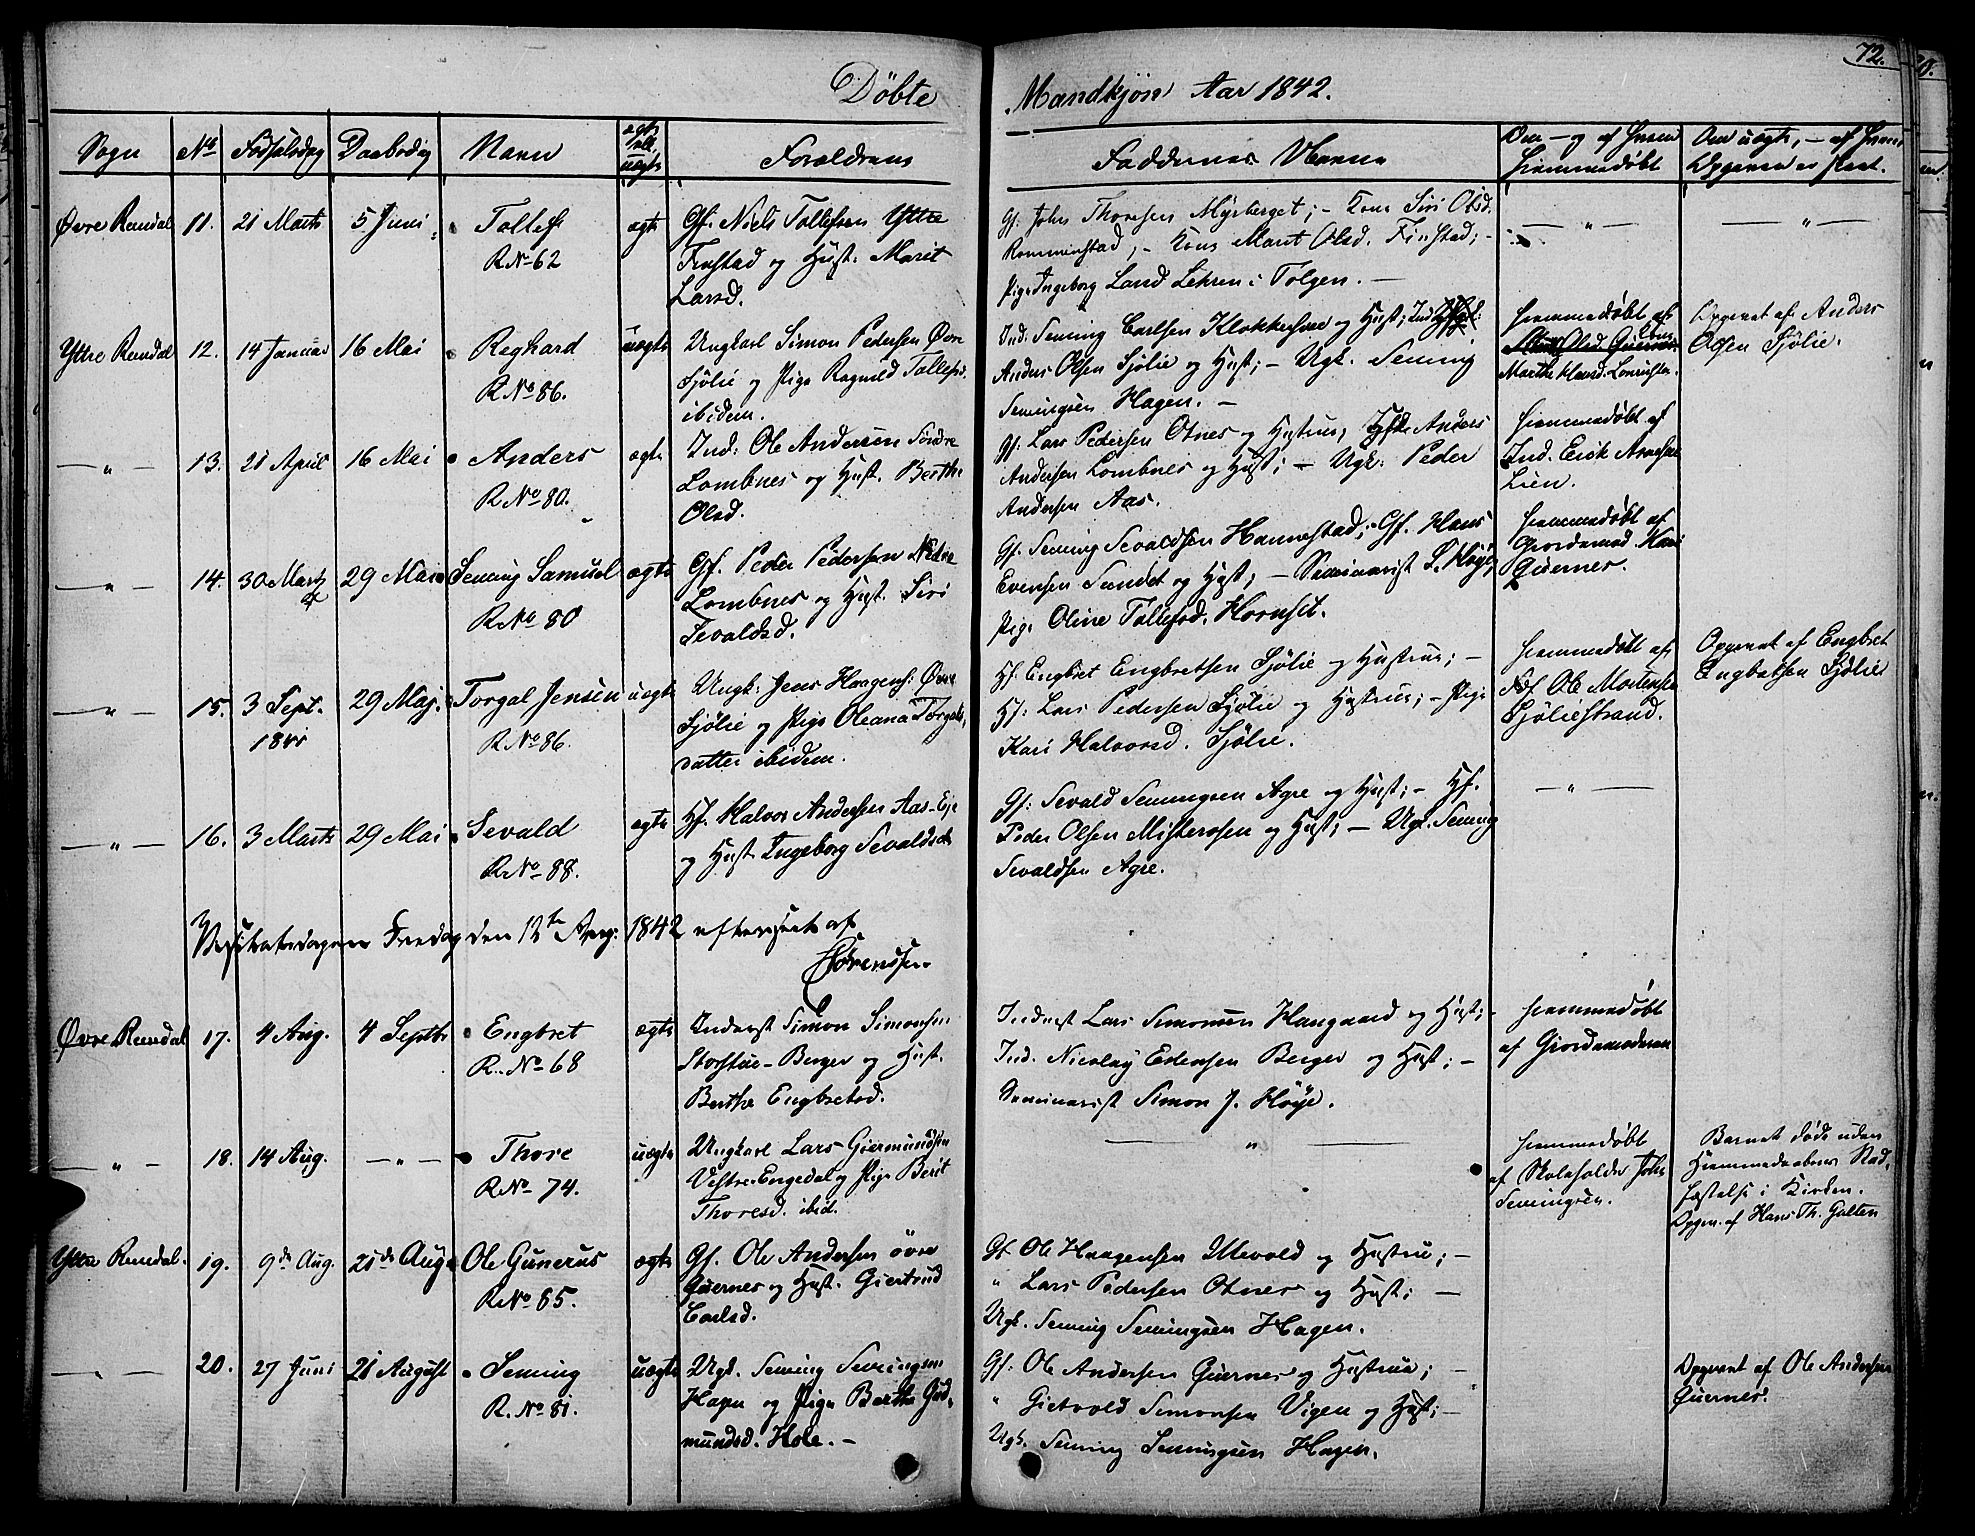 72.
Døbte Mandkjøn Aar 1842.
Sogn No Fødselsdag Daabsdag Navn ægte ell. uægte Forældrene Faddernes Navne Om – og af hvem hjemmedøbt Om uægte, – af hvem Opgaven er skeet.
Øvre Rendal 11. 21 Marts 5 Juni Tollef ægte Gf. Niels Tollefsen Yttre
R No 62 Finstad og Hust: Marit
Larsd.
Gf. John Thoresen Myrberget; – Kone Siri Olsd.
Romminstad; – Kone Marit Olsd. Finstad; –
Pige Ingeborg Lehren i Tolgen. –
— " — — " —
Yttre Rendal 12. 14 Januar 16 Mai Reghard uægte Ungkarl Simon Pedersen Øvre
R No 86. Sjølie og Pige Ragnild Tollefsd.
ibidem.
Ind. Seming Carlsen Klokkerhuse og Hust;
Anders Olsen Sjølie og Hust; – Ugk. Seming
Semingsen Hagen. –
hjemmedøbt af
Marthe Hansd.
Opgivet af Anders
Olsen Sjølie.
— " — 13. 21 April 16 Mai Anders ægte Ind: Ole Andersen Søndre
R No 80. Lombnes og Hust. Berthe
Olsd.
Gf: Lars Pedersen Otnes og Hustrue; Anders
Andersen Lombnes og Hust; – Ugk: Peder
Andersen Aas.
hjemmedøbt af
Ind. Erik Arnesen
Lien.
— " — 14. 30 Marts 29 Mai Seming Samuel ægte Gf. Peder Pedersen Nedre
R No 80 Lombnes og Hust. Siri
Sevaldsd.
Gf. Seming Sevaldsen Hannestad; – Gf. Hans
Evensen Sundet og Hust; – Seminarist S. Høye;
Pige Oline Tollefsd. Hornset.
hjemmedøbt af
Giordemod. Kari
Qvernes.
— " — 15. 3 Sept. 29 Maj. Torgal Jensen uægte Ungk: Jens Haagens: Øvre
1841 R No 86. Sjølie og Pige Oleana Torgals-
datter ibidem.
Hf. Engbret Engbretsen Sjølie og Hustrue; –
Hf: Lars Pedersen Sjølie og Hustrue; – Pige
Kari Halvorsd. Sjølie.
hjemmedøbt af
Ole Mortensen
Sjøliestrand.
Opgivet af Engbret
Engbretsen Sjølie
— " — 16. 3 Marts 29 Mai Sevald ægte Hf. Halvor Andersen Aas-Eje
R No 88. og Hust. Ingeborg Sevaldsd.
Gf: Sevald Semingsen Agre og Hust; – Hf.
Peder Olsen Misterosen og Hust; – Ugk. Seming
Sevaldsen Agre.
— " —
Visitatsdagen Fredag den 12te Aug: 1842 efterseet af
Sørenssen
Øvre Rendal 17. 4 Aug. 4 Septbr Engbret ægte Inderst Simon Simonsen
R. No 68 Storstue-Berger og Hust.
Berthe Engbretsd.
Inderst Lars Simonsen Haugaard og Hust; –
Ind. Nicolay Estensen Berger og Hust; –
Seminarist Simon J. Høye.
hjemmedøbt
af Giordemoderen
— " — 18. 14 Aug. — " — Thore uægte Ungkarl Lars Giermundsen
R No 74. Vestre-Engedal og Pige Berit
Thoresd. ibid.
— " —
hjemmedøbt
af Skoleholder John
Semingsen.
Barnet døde uden
Hjemmedaabens Stad-
fæstelse i Kirken.
Opgiv. af Hans Th. Galten
Yttre Rendal. 19. 9de Aug. 21de Aug. Ole Gunerus ægte Gf. Ole Andersen øvre
R No 85. Qvernes og Hust. Giertrud
Carlsd.
Gf. Ole Haagensen Ullevold og Hustrue; –
" Lars Pedersen Otnes og Hust; –
Ugk. Seming Semingsen Hagen.
— " — 20. 27 Juni 21 August Seming uægte Ugk. Seming Semingsen
R. No 81. Hagen og Pige Berthe Gud-
mundsd. Hole. –
Gf: Ole Andersen Qvernes og Hustrue; –
" Gietvold Simonsen Vigen og Hust; –
Ugk. Seming Semingsen Hagen.
Opgivet af Ole Andersen
Qvernes.